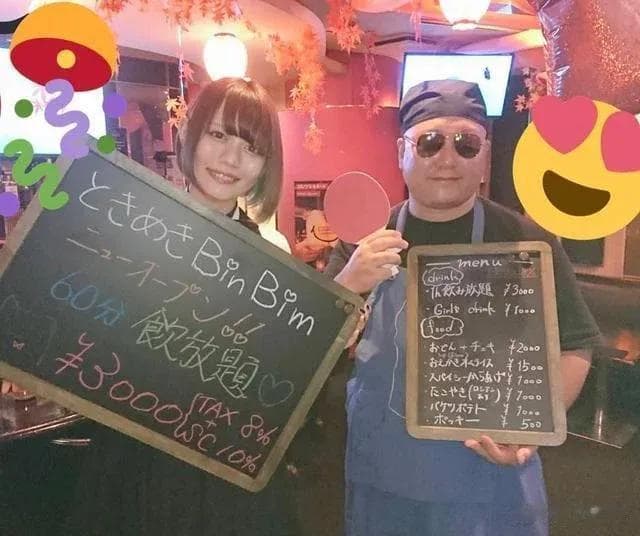 ときめきBinBim
ニューオープン!!
60分 飲放題♡
¥3000 TAX 8%
+
SC 10%
menu
drink
・1h飲み放題 ¥3000
・Girls drink ¥1000
food
・おでん+チェキ ¥2000
・おえかきオムライス ¥1500
・スパイシーから揚げ ¥1000
・たこやき ¥1000
・バケツポテト ¥1000
ポッキー ¥500